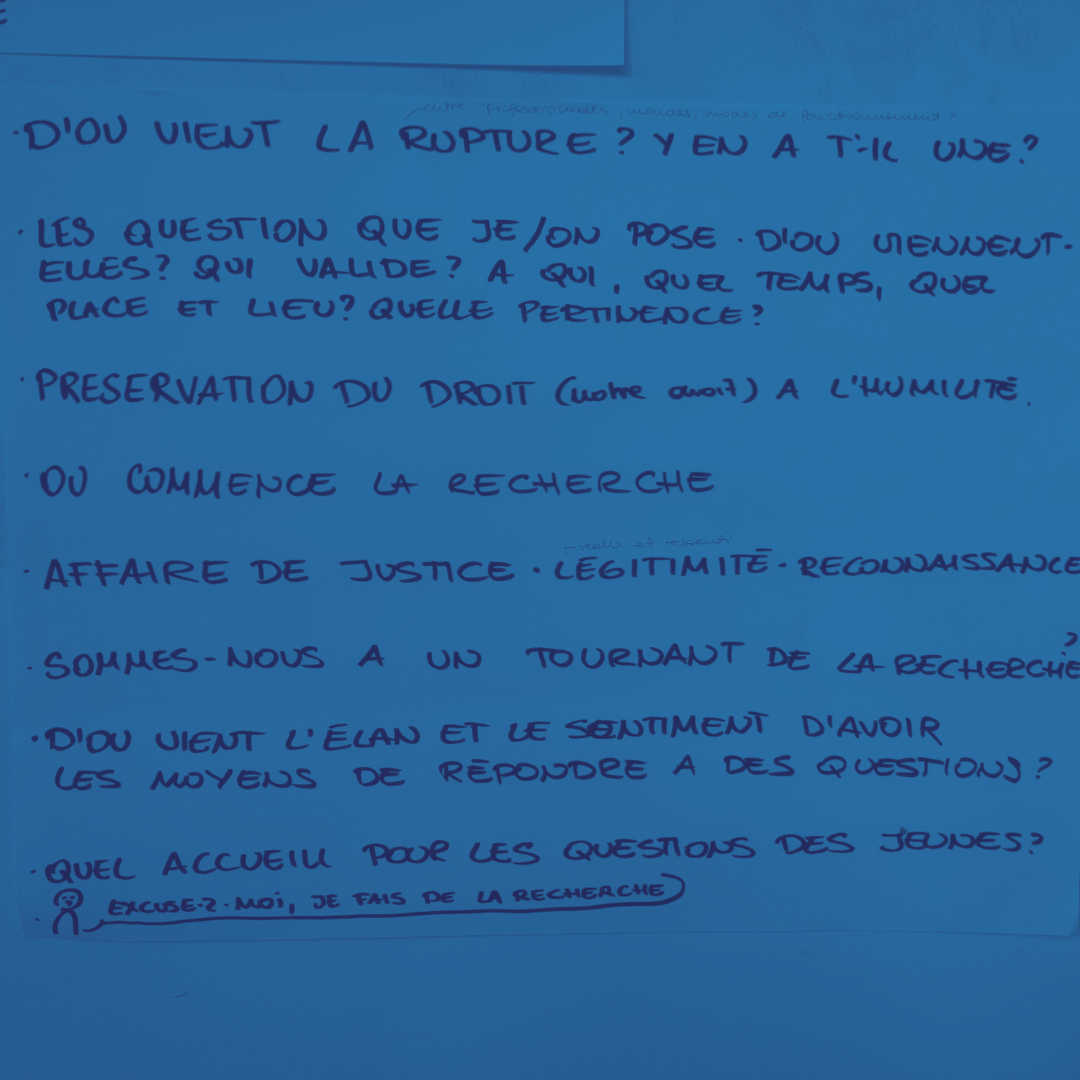 entre "professionnels", mondes, modes de fonctionnement?
· D'OU VIENT LA RUPTURE ? Y EN A T'-IL UNE ?
· LES QUESTION QUE JE/ON POSE · D'OU VIENNENT-
ELLES ? QUI VALIDE ? A QUI, QUEL TEMPS, QUEL
PLACE ET LIEU ? QUELLE PERTINENCE ?
· PRESERVATION DU DROIT (notre droit) A L'HUMILITÉ.
· OU COMMENCE LA RECHERCHE
réelle et ressenti
· AFFAIRE DE JUSTICE · LÉGITIMITÉ · RECONNAISSANCE
· SOMMES-NOUS A UN TOURNANT DE LA RECHERCHE ?
· D'OU VIENT L'ÉLAN ET LE SENTIMENT D'AVOIR
LES MOYENS DE RÉPONDRE A DES QUESTIONS ?
· QUEL ACCUEIL POUR LES QUESTIONS DES JEUNES ?
· EXCUSE-Z-MOi, JE FAIS DE LA RECHERCHE